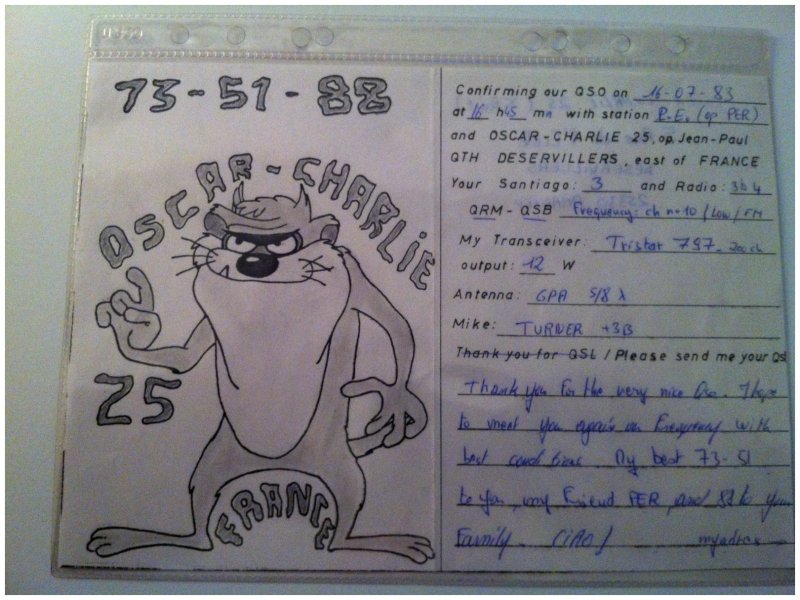 73-51-88
OSCAR-CHARLIE
25
FRANCE
Confirming our QSO on 16-07-83
at 16 h45 mn with station P.E. (op PER)
and OSCAR-CHARLIE 25, op. Jean-Paul
QTH DESERVILLERS, east of FRANCE
Your Santiago: 3 and Radio: 3 b 4
QRM - QSB Frequency: ch n° 10 / Low / FM
My Transceiver: Tristar 797 - 200ch
output: 12 W
Antenna: GPA 5/8 λ
Mike: TURNER +3B
Thank you for QSL / Please send me your Qsl
Thank you for the very nice Qso. I hope
to meet you again on Frequency with
best conditions. My best 73-51
to you, my Friend PER, and 88 to your
Family. CIAO! my adress